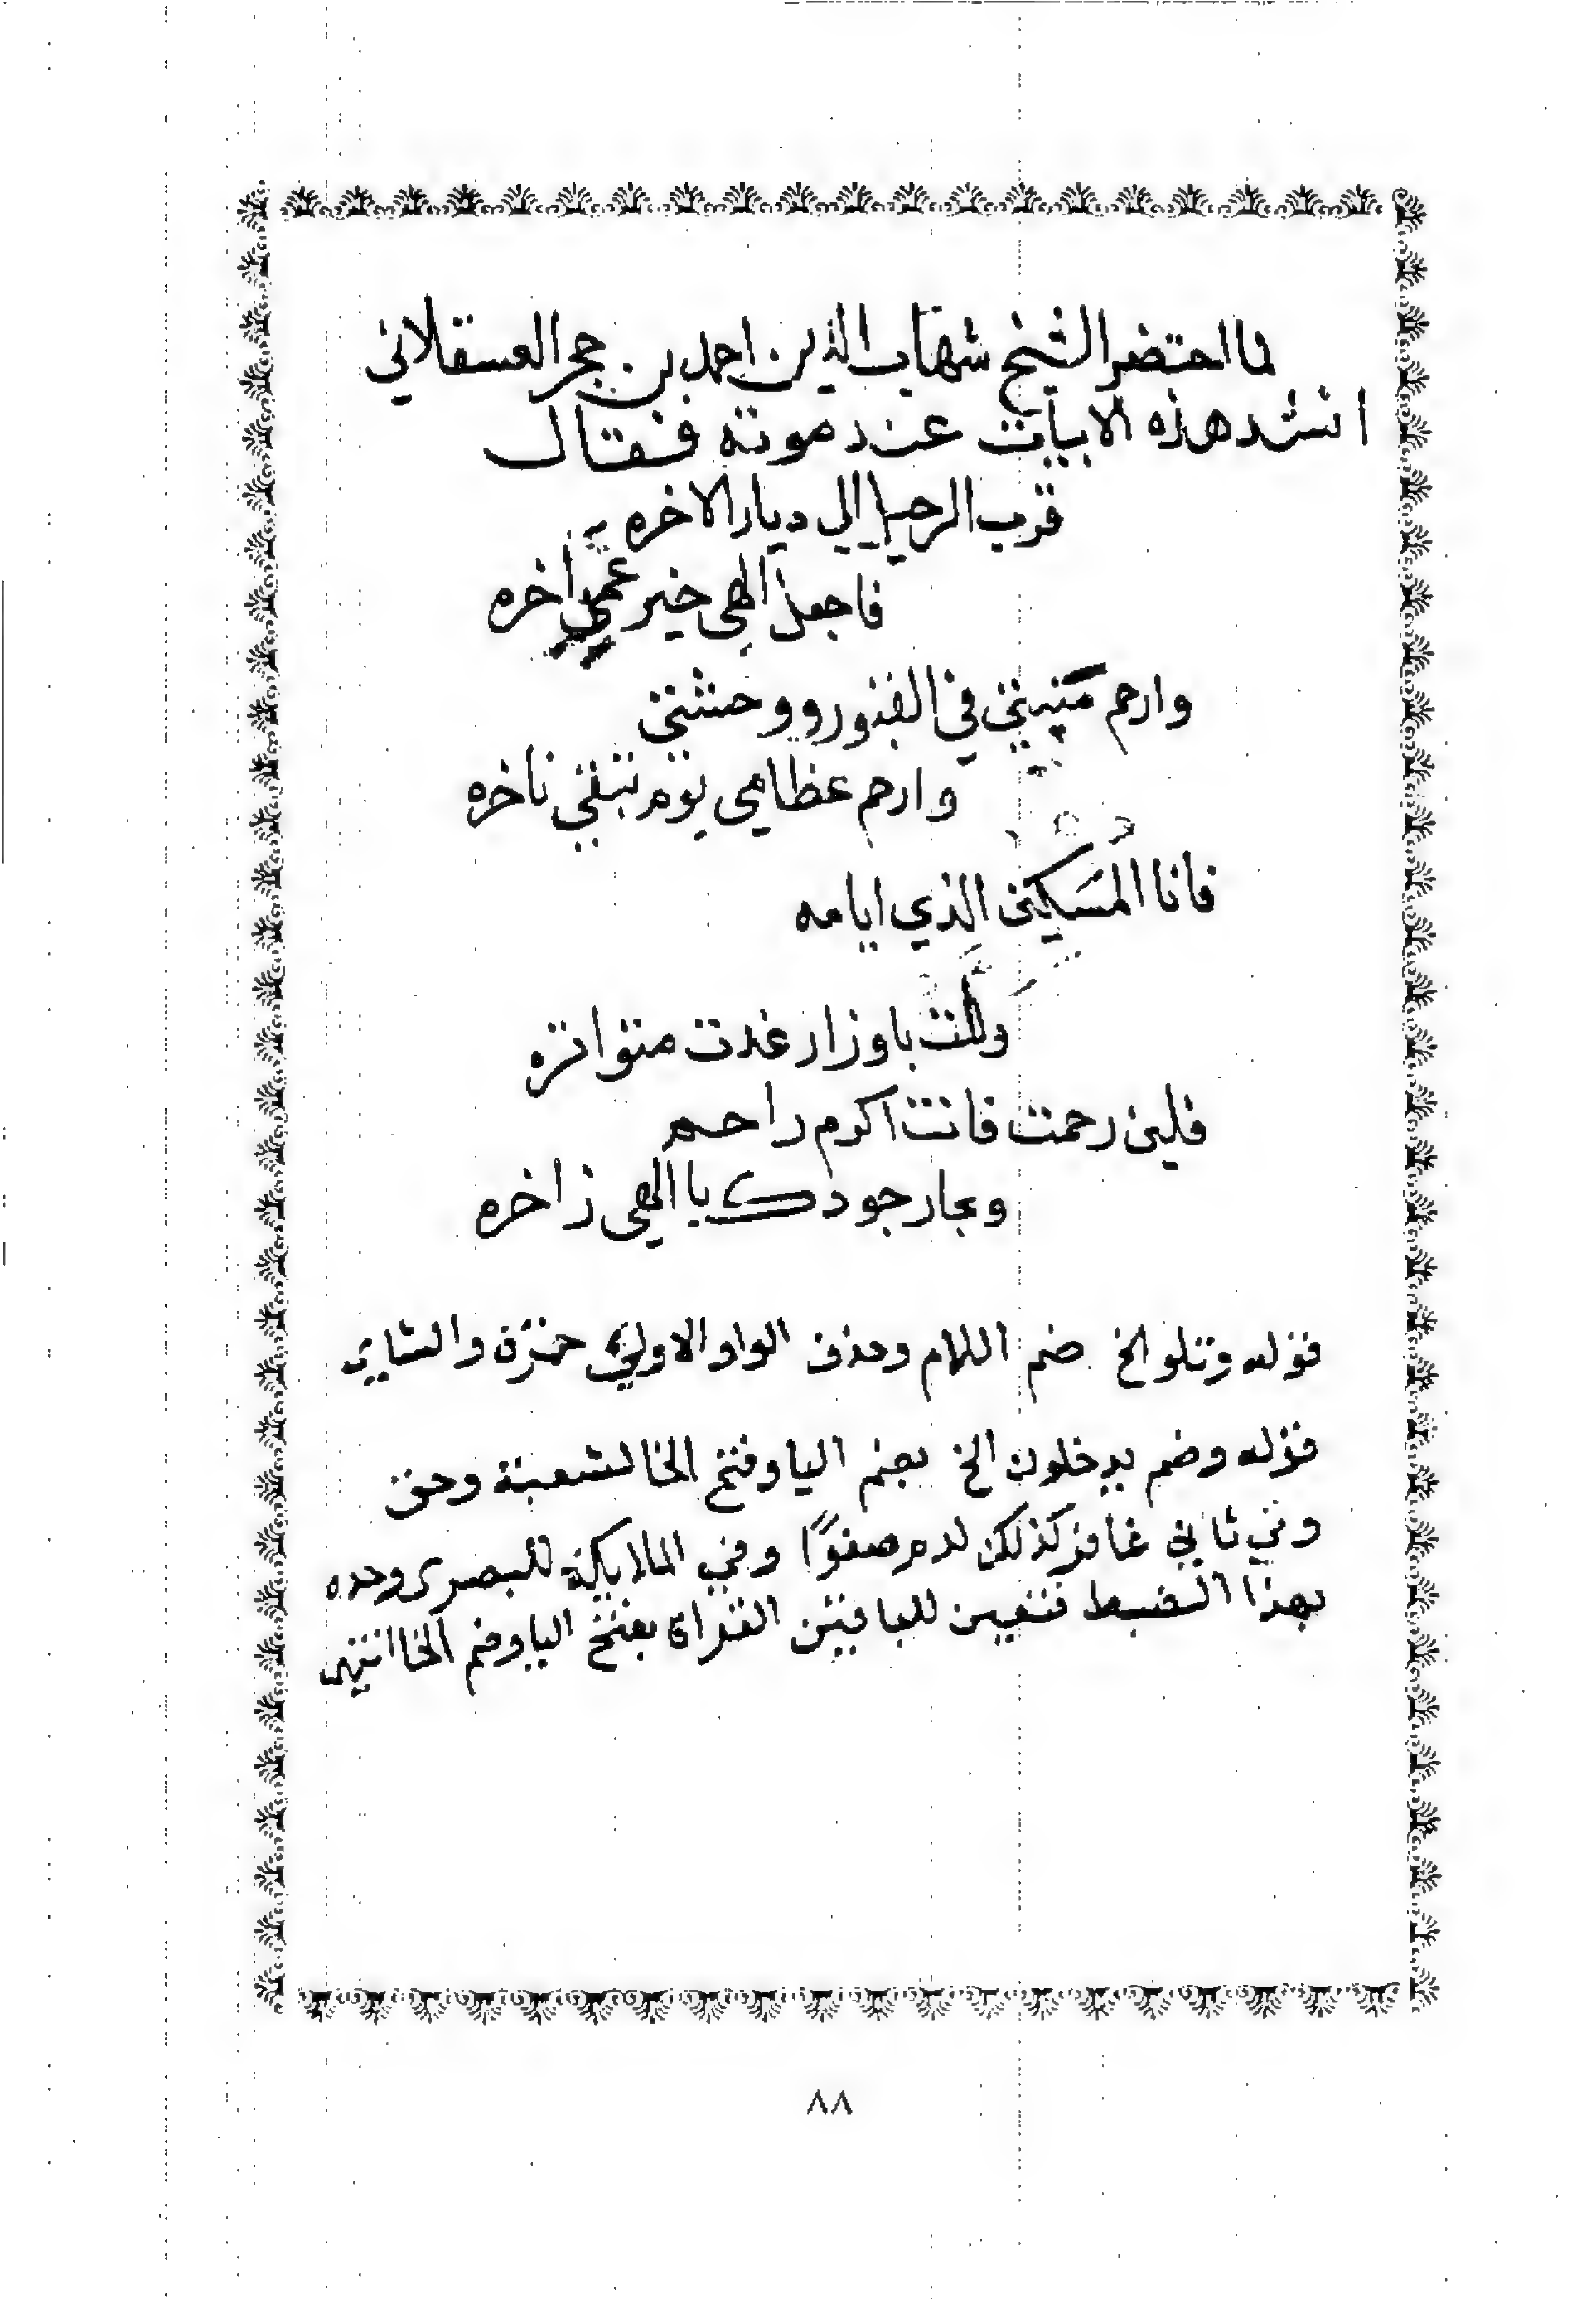 لما احتضر الشيخ شهاب الدين احمد بن حجر العسقلاني
انشد هذه الابيات عند موته فقال
قرب الرحيل الي ديار الاخره
فاجعل الهي خير عمري اخره
وارحم مبيتي في القبور ووحشتي
وارحم عظامي يوم تبقي ناخره
فانا المسكين الذي ايامه
ولت باوزار غدت متواتره
فلين رحمت فانت اكرم راحم
وبحار جودك يا الهي زاخره
قوله وتلو الخ ضم اللام وحذف الواو الاولي حمزة والشاي
قوله وضم يدخلون الخ بضم اليا وفتح الخا لشعبة وحق
وفي ثاني غافر كذلك لدم صفوًا وفي الملايكة للبصري وحده
بهذا الضبط فتعين للباقين القراة بفتح اليا وضم الخا انتهى
٨٨